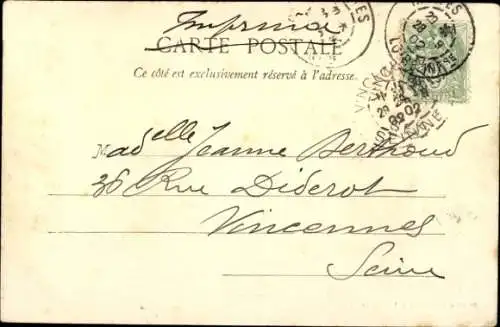 Imprimé
CARTE POSTALE
Ce côté est exclusivement réservé à l'adresse.
Madelle Jeanne Berthoud
36 Rue Diderot
Vincennes
Seine